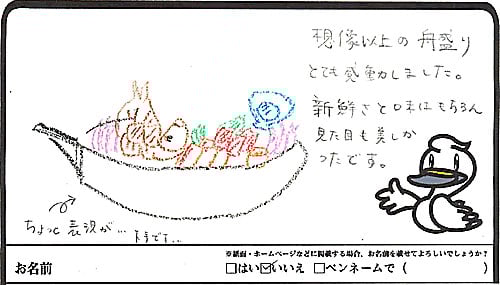 想像以上の舟盛り
とても感動しました。
新鮮さと味はもちろん
見た目も美しか
ったです。
ちょっと表現が…下手です…
※紙面・ホームページなどに掲載する場合、お名前を載せてよろしいでしょうか?
お名前
□はい ☑いいえ □ペンネームで( )